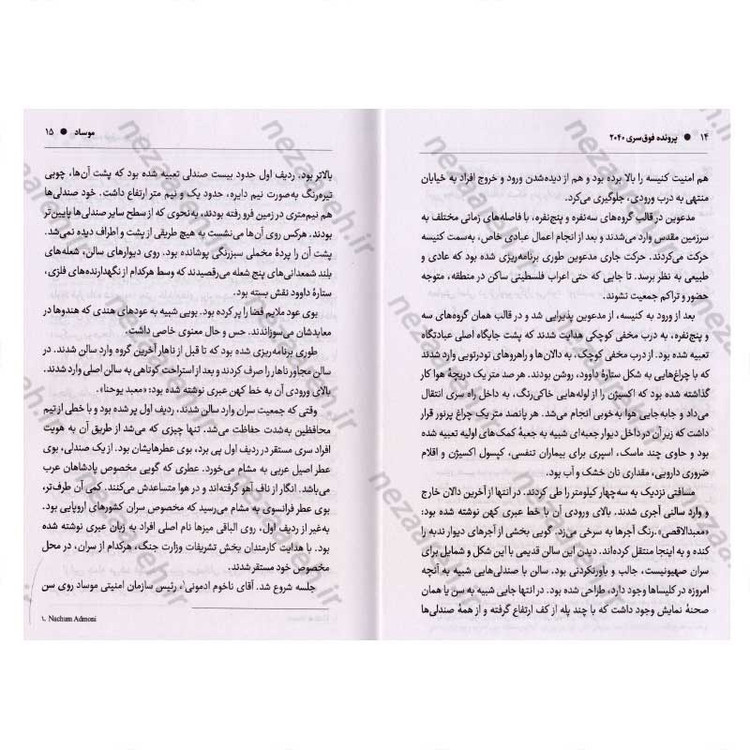 ۱۴ ● پرونده فوق‌سری ۲۰۴۰
هم امنیت کنیسه را بالا برده بود و هم از دیده‌شدن ورود و خروج افراد به خیابان
منتهی به درب ورودی، جلوگیری می‌کرد.
مدعوین در قالب گروه‌های سه‌نفره و پنج‌نفره، با فاصله‌های زمانی مختلف به
سرزمین مقدس وارد می‌شدند و بعد از انجام اعمال عبادی خاص، به‌سمت کنیسه
حرکت می‌کردند. حرکت جاری مدعوین طوری برنامه‌ریزی شده بود که عادی و
طبیعی به نظر برسد. تا جایی که حتی اعراب فلسطینی ساکن در منطقه، متوجه
حضور و تراکم جمعیت نشوند.
بعد از ورود به کنیسه، از مدعوین پذیرایی شد و در قالب همان گروه‌های سه
و پنج‌نفره، به درب مخفی کوچکی هدایت شدند که پشت جایگاه اصلی عبادتگاه
تعبیه شده بود. از درب مخفی کوچک، به دالان‌ها و راهروهای تودرتویی وارد شدند
که با چراغ‌هایی به شکل ستارهٔ داوود، روشن بودند. هر صد متر یک دریچهٔ هوا کار
گذاشته شده بود که اکسیژن را از لوله‌هایی خاکی‌رنگ، به داخل راه سری انتقال
می‌داد و جابه‌جایی هوا به‌خوبی انجام می‌شد. هر پانصد متر یک چراغ پرنور قرار
داشت که زیر آن در داخل دیوار جعبه‌ای شبیه به جعبهٔ کمک‌های اولیه تعبیه شده
بود و حاوی چند ماسک، اسپری برای بیماران تنفسی، کپسول اکسیژن و اقلام
ضروری دارویی، مقداری نان خشک و آب بود.
مسافتی نزدیک به سه‌چهار کیلومتر را طی کردند. در انتها از آخرین دالان خارج
و وارد سالنی آجری شدند. بالای ورودی آن با خط عبری کهن نوشته شده بود:
«معبدالاقصی».رنگ آجرها به سرخی می‌زد. گویی بخشی از آجرهای دیوار ندبه را
کنده و به اینجا منتقل کرده‌اند. دیدن این سالن قدیمی با این شکل و شمایل برای
سران صهیونیست، جالب و باورنکردنی بود. سالن با صندلی‌هایی شبیه به آنچه
امروزه در کلیساها وجود دارد، طراحی شده بود. در انتها جایی شبیه به سن یا همان
صحنهٔ نمایش وجود داشت که با چند پله از کف ارتفاع گرفته و از همهٔ صندلی‌ها
موساد ● ۱۵
بالاتر بود. ردیف اول حدود بیست صندلی تعبیه شده بود که پشت آن‌ها، چوبی
تیره‌رنگ به‌صورت نیم دایره، حدود یک و نیم متر ارتفاع داشت. خود صندلی‌ها
هم نیم‌متری در زمین فرو رفته بودند، به‌نحوی که از سطح سایر صندلی‌ها پایین‌تر
بودند. هرکس روی آن‌ها می‌نشست به هیچ طریقی از پشت و اطراف دیده نمی‌شد.
پشت آن را پردهٔ مخملی سبزرنگی پوشانده بود. روی دیوارهای سالن، شعله‌های
بلند شمعدانی‌های پنج شعله می‌رقصیدند که وسط هرکدام از نگهدارنده‌های فلزی،
ستارهٔ داوود نقش بسته بود.
بوی عود ملایم فضا را پر کرده بود. بویی شبیه به عودهای هندی که هندوها در
معابدشان می‌سوزاندند. حس و حال معنوی خاصی داشت.
طوری برنامه‌ریزی شده بود که تا قبل از ناهار آخرین گروه وارد سالن شدند. در
سالن مجاور ناهار را صرف کردند و بعد از استراحت کوتاهی به سالن اصلی وارد شدند.
بالای ورودی آن به خط کهن عبری نوشته شده بود: «معبد یوحنا».
وقتی که جمعیت سران وارد سالن شدند، ردیف اول پر شده بود و با خطی از تیم
محافظین به‌شدت حفاظت می‌شد. تنها چیزی که می‌شد از طریق آن به هویت
افراد سری مستقر در ردیف اول پی برد، بوی عطرهایشان بود. از یک صندلی، بوی
عطر اصیل عربی به مشام می‌خورد. عطری که گویی مخصوص پادشاهان عرب
می‌باشد. انگار از ناف آهو گرفته‌اند و در هوا متساعدش می‌کنند. کمی آن طرف‌تر،
بوی عطر فرانسوی به مشام می‌رسید که مخصوص سران کشورهای اروپایی بود.
به‌غیر از ردیف اول، روی الباقی میزها نام اصلی افراد به زبان عبری نوشته شده
بود. با هدایت کارمندان بخش تشریفات وزارت جنگ، هرکدام از سران، در محل
مخصوص خود مستقر شدند.
جلسه شروع شد. آقای ناخوم ادمونی۱، رئیس سازمان امنیتی موساد روی سن
۱. Nachum Admoni
nezaareh.ir
nezaareh.ir
nezaareh.ir
nezaareh.ir
nezaareh.ir
nezaareh.ir